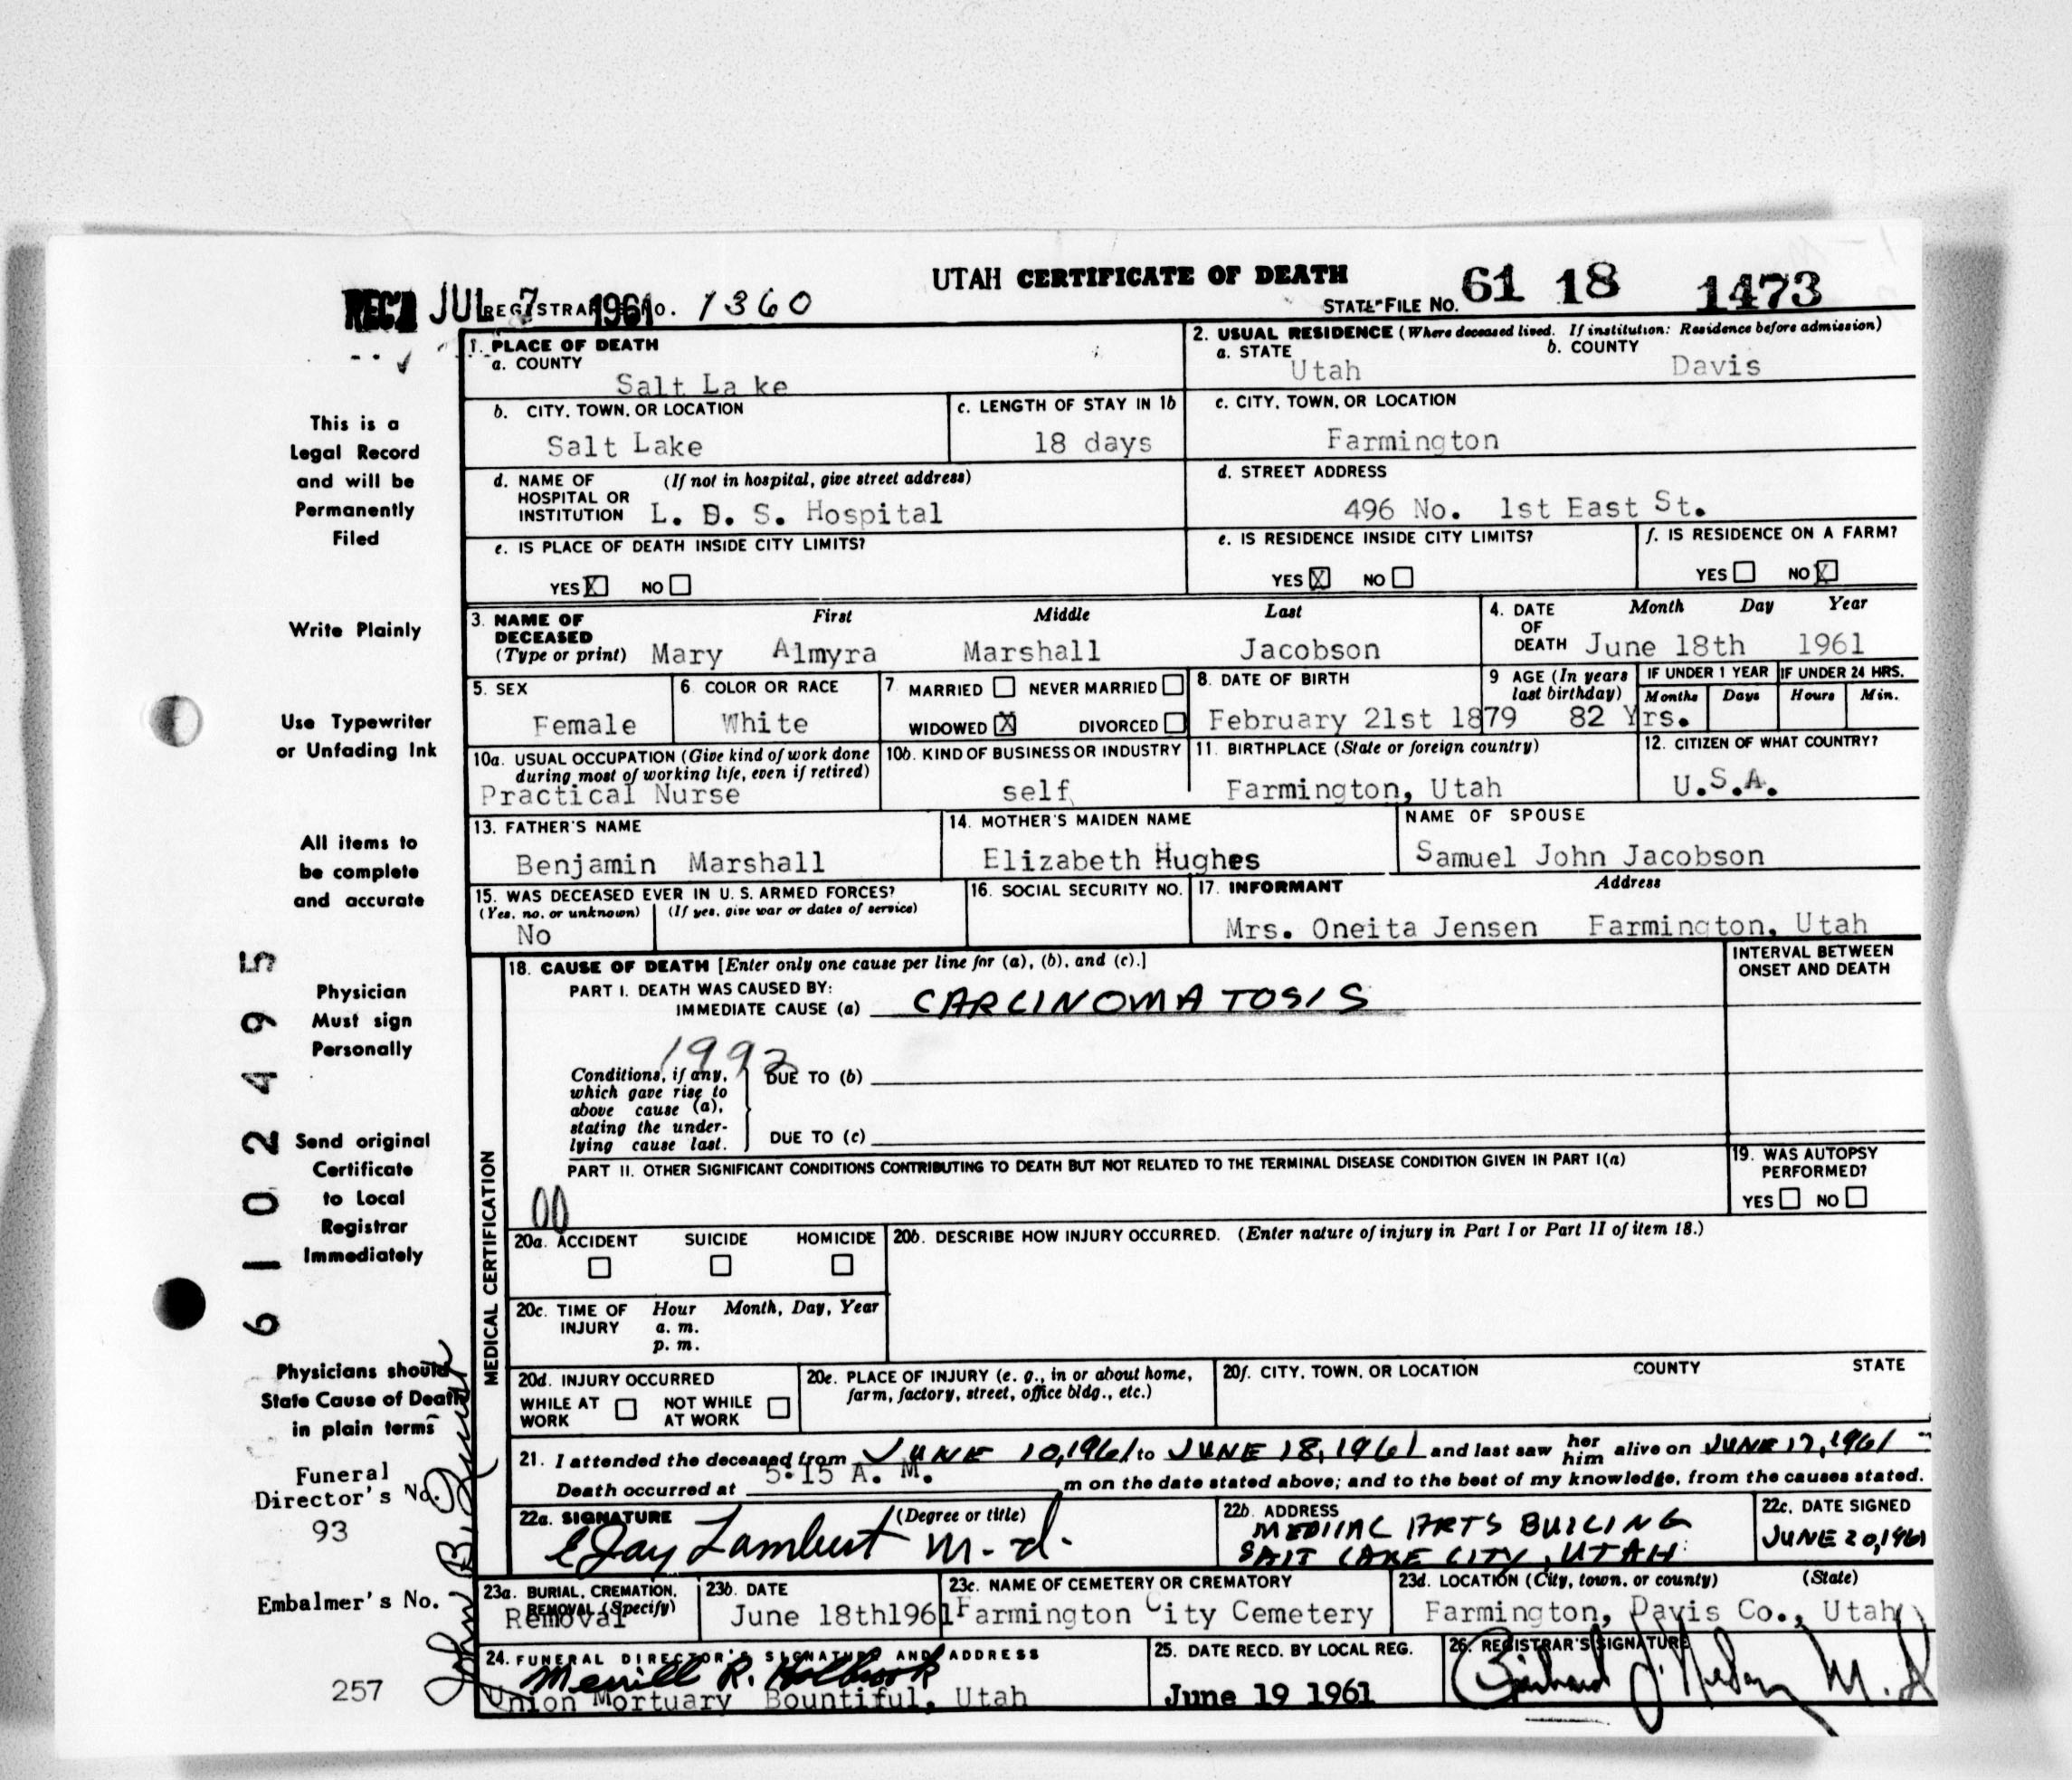 UTAH CERTIFICATE OF DEATH
REC'D JUL 7 1961 REGISTRAR NO. 1360
STATE FILE NO. 61 18 1473
1. PLACE OF DEATH
a. COUNTY
Salt Lake
2. USUAL RESIDENCE (Where deceased lived. If institution: Residence before admission)
a. STATE b. COUNTY
Utah Davis
b. CITY, TOWN, OR LOCATION
Salt Lake
c. LENGTH OF STAY IN 1b
18 days
c. CITY, TOWN, OR LOCATION
Farmington
d. NAME OF (If not in hospital, give street address)
HOSPITAL OR
INSTITUTION L. D. S. Hospital
d. STREET ADDRESS
496 No. 1st East St.
e. IS PLACE OF DEATH INSIDE CITY LIMITS?
YES X NO
e. IS RESIDENCE INSIDE CITY LIMITS?
YES X NO
f. IS RESIDENCE ON A FARM?
YES NO X
3. NAME OF First Middle Last
DECEASED
(Type or print) Mary Almyra Marshall Jacobson
4. DATE Month Day Year
OF
DEATH June 18th 1961
5. SEX
Female
6. COLOR OR RACE
White
7. MARRIED NEVER MARRIED
WIDOWED X DIVORCED
8. DATE OF BIRTH
February 21st 1879
9 AGE (In years
last birthday)
82 Yrs.
IF UNDER 1 YEAR IF UNDER 24 HRS.
Months Days Hours Min.
10a. USUAL OCCUPATION (Give kind of work done
during most of working life, even if retired)
Practical Nurse
10b. KIND OF BUSINESS OR INDUSTRY
self
11. BIRTHPLACE (State or foreign country)
Farmington, Utah
12. CITIZEN OF WHAT COUNTRY?
U.S.A.
13. FATHER'S NAME
Benjamin Marshall
14. MOTHER'S MAIDEN NAME
Elizabeth Hughes
NAME OF SPOUSE
Samuel John Jacobson
15. WAS DECEASED EVER IN U. S. ARMED FORCES?
(Yes, no, or unknown) (If yes, give war or dates of service)
No
16. SOCIAL SECURITY NO.
17. INFORMANT Address
Mrs. Oneita Jensen Farmington, Utah
MEDICAL CERTIFICATION
18. CAUSE OF DEATH [Enter only one cause per line for (a), (b), and (c).]
PART I. DEATH WAS CAUSED BY:
IMMEDIATE CAUSE (a) CARCINOMATOSIS
INTERVAL BETWEEN
ONSET AND DEATH
1992
Conditions, if any,
which gave rise to
above cause (a),
stating the under-
lying cause last.
DUE TO (b)
DUE TO (c)
PART II. OTHER SIGNIFICANT CONDITIONS CONTRIBUTING TO DEATH BUT NOT RELATED TO THE TERMINAL DISEASE CONDITION GIVEN IN PART I(a)
00
19. WAS AUTOPSY
PERFORMED?
YES NO
20a. ACCIDENT SUICIDE HOMICIDE
20b. DESCRIBE HOW INJURY OCCURRED. (Enter nature of injury in Part I or Part II of item 18.)
20c. TIME OF Hour Month, Day, Year
INJURY a. m.
p. m.
20d. INJURY OCCURRED
WHILE AT NOT WHILE
WORK AT WORK
20e. PLACE OF INJURY (e. g., in or about home,
farm, factory, street, office bldg., etc.)
20f. CITY, TOWN, OR LOCATION COUNTY STATE
21. I attended the deceased from JUNE 10, 1961 to JUNE 18, 1961 and last saw her him alive on JUNE 17, 1961
Death occurred at 5:15 A. M. m on the date stated above; and to the best of my knowledge, from the causes stated.
22a. SIGNATURE (Degree or title)
E Jay Lambert M.d.
22b. ADDRESS
MEDICAL ARTS BUILING
SALT LAKE CITY, UTAH
22c. DATE SIGNED
JUNE 20, 1961
23a. BURIAL, CREMATION,
REMOVAL (Specify)
Removal
23b. DATE
June 18th1961
23c. NAME OF CEMETERY OR CREMATORY
Farmington City Cemetery
23d. LOCATION (City, town, or county) (State)
Farmington, Davis Co., Utah
24. FUNERAL DIRECTOR'S SIGNATURE AND ADDRESS
Merrill R. Holbrook
Union Mortuary Bountiful, Utah
25. DATE RECD. BY LOCAL REG.
June 19 1961
26. REGISTRAR'S SIGNATURE
M.d
This is a
Legal Record
and will be
Permanently
Filed
Write Plainly
Use Typewriter
or Unfading Ink
All items to
be complete
and accurate
Physician
Must sign
Personally
Send original
Certificate
to Local
Registrar
Immediately
Physicians should
State Cause of Death
in plain terms
Funeral
Director's No.
93
Embalmer's No.
257
John B.
61024 95